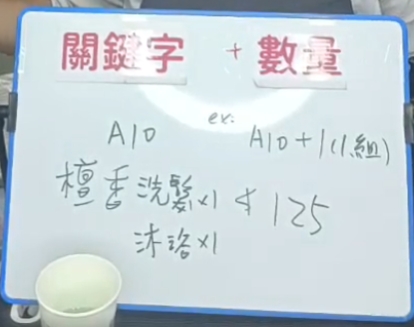 關鍵字 + 數量
ex:
A10 A10+1(1組)
檀香洗髮x1 $125
沐浴x1